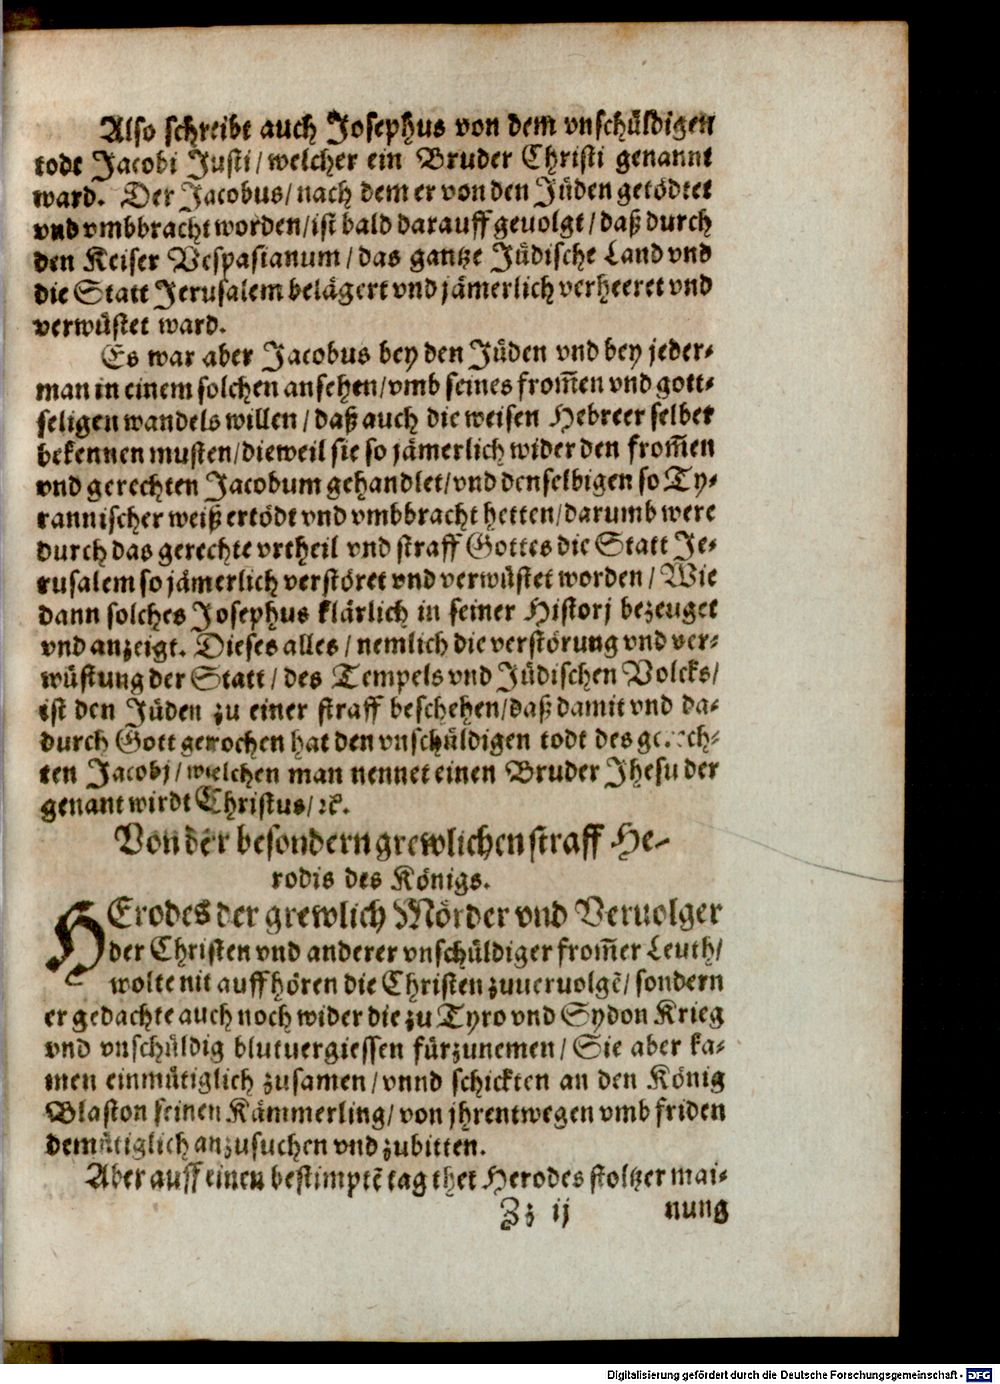 Also schreibt auch Josephus von dem vnschüldigen
todt Jacobi Justi/ welcher ein Bruder Christi genannt
ward. Der Jacobus/ nach dem er von den Jüden getödtet
vnd vmbbracht worden/ ist bald darauff geuolgt/ daß durch
den Keiser Vespasianum/ das gantze Jüdische Land vnd
die Statt Jerusalem belägert vnd jämerlich verheeret vnd
verwüstet ward.
Es war aber Jacobus bey den Jüden vnd bey jeder-
man in einem solchen ansehen/ vmb seines from̃en vnd gott-
seligen wandels willen/ daß auch die weisen Hebreer selber
bekennen musten/ dieweil sie so jämerlich wider den from̃en
vnd gerechten Jacobum gehandlet/ vnd denselbigen so Ty-
rannischer weiß ertödt vnd vmbbracht hetten/ darumb were
durch das gerechte vrtheil vnd straff Gottes die Statt Je-
rusalem so jämerlich verstöret vnd verwüstet worden/ Wie
dann solches Josephus klärlich in seiner Historj bezeuget
vnd anzeigt. Dieses alles/ nemlich die verstörung vnd ver-
wüstung der Statt/ des Tempels vnd Jüdischen Volcks/
ist den Jüden zu einer straff beschehen/ daß damit vnd da-
durch Gott gerochen hat den vnschüldigen todt des gerech-
ten Jacobj/ welchen man nennet einen Bruder Jhesu der
genant wirdt Christus/ ꝛc.
Von der besondern grewlichen straff He-
rodis des Königs.
HErodes der grewlich Mörder vnd Veruolger
der Christen vnd anderer vnschüldiger from̃er Leuth/
wolte nit auffhören die Christen zuueruolgẽ/ sondern
er gedachte auch noch wider die zu Tyro vnd Sydon Krieg
vnd vnschüldig blutuergiessen fürzunemen/ Sie aber ka-
men einmütiglich zusamen/ vnnd schickten an den König
Blaston seinen Kämmerling/ von jhrentwegen vmb friden
demütiglich anzusuchen vnd zubitten.
Aber auff einen bestimptẽ tag thet Herodes stoltzer mai-
Zz ij nung
Digitalisierung gefördert durch die Deutsche Forschungsgemeinschaft - DFG